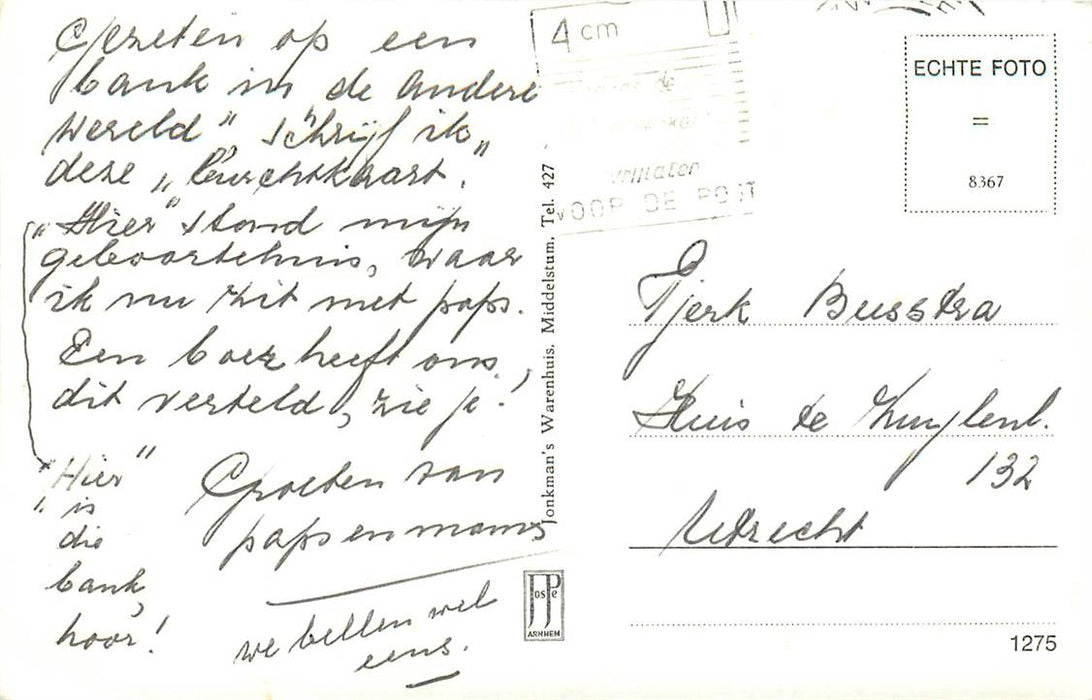 Gezeten op een
bank in de andere
wereld" schrijf ik
deze „luchtkaart".
„Hier" stond mijn
geboortehuis, waar
ik nu zit met paps.
Een boer heeft ons
dit verteld, zie je!
„Hier"
is
die
bank,
hoor!
Groeten van
paps en mams
we bellen wel
eens.
Jonkman's Warenhuis, Middelstum, Tel. 427
JosPe
ARNHEM
4 cm
VOOR DE POST
ECHTE FOTO
=
8367
Tjerk Busstra
Huis te Zuylenl.
132
Utrecht
1275